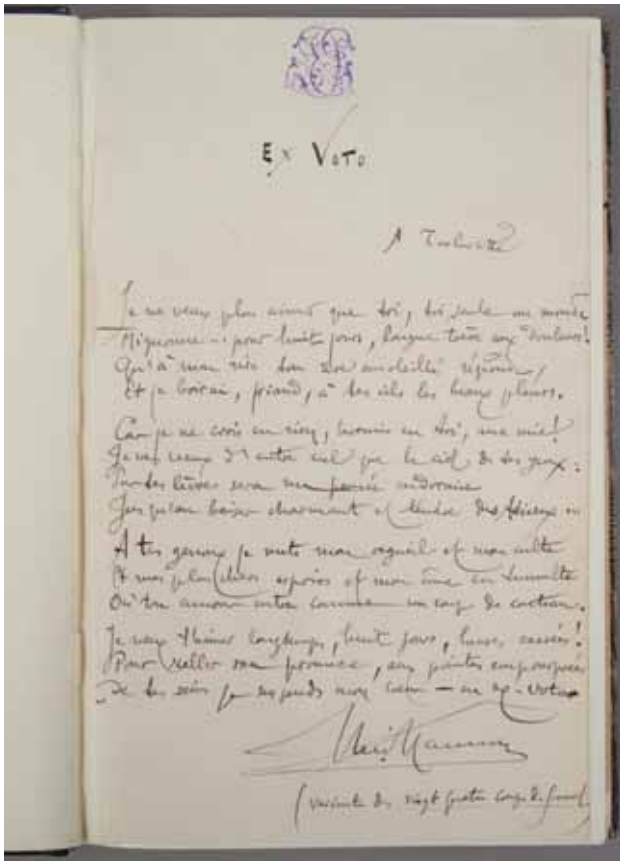 Ex Voto
A
Je ne veux plus aimer que toi, toi seule au monde
Mignonne — pour huit jours, longue trêve aux douleurs!
Qu'à mon rire ton rire ensoleillé réponde,
Et je boirai, friand, à tes cils les beaux pleurs.
Car je ne crois en rien, hormis en toi, ma mie!
Je ne veux d'autre ciel que le ciel de tes yeux:
Sur tes lèvres sera ma pensée endormie
Jusqu'au baiser charmant et tendre des adieux
A tes genoux je mets mon orgueil et mon culte
Et mes plus chers espoirs et mon âme en tumulte
Où ton amour entra comme un coup de couteau.
Je veux t'aimer longtemps, huit jours, heures!
Pour sceller ma promesse, aux pointes empourprées
De tes seins je suspends mon cœur — en ex-voto
(variante des vingt quatre coups de